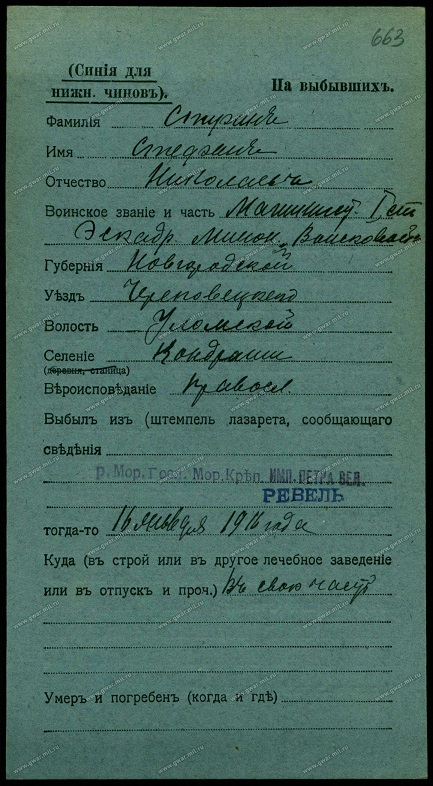 663
(Синія для
нижн. чиновъ).
На выбывшихъ.
Фамилія
Имя Стефанъ
Отчество Николаевъ
Воинское званіе и часть Машинист I ст
Эскадр. Минон. "Войсковой"
Губернія Новгородской
Уѣздъ Череповецкаго
Волость Уломской
Селеніе Кондраши
(деревня, станица)
Вѣроисповѣданіе Правосл.
Выбылъ изъ (штемпель лазарета, сообщающаго
свѣдѣнія
р. Мор. Госп. Мор. Крѣп. ИМП. ПЕТРА ВЕЛ.
РЕВЕЛЬ
тогда-то 16 января 1916 года
Куда (въ строй или въ другое лечебное заведеніе
или въ отпускъ и проч.) Въ свою часть
Умеръ и погребенъ (когда и гдѣ)
www.gwar.mil.ru